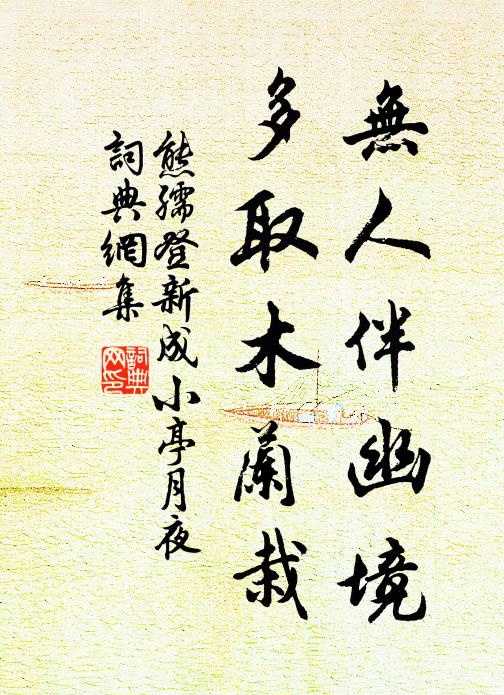 無人伴幽境
多取木蘭栽
熊孺登新成小亭月夜
詞典網集
詞典
网印